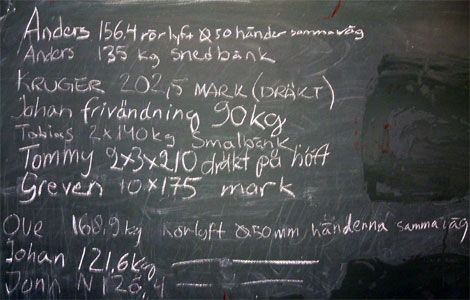 Anders 156.4 rörlyft Ø50 händer samma väg
Anders 135 kg snedbänk
KRUGER 202,5 MARK (DRÄKT)
Johan frivändning 90kg
Tobias 2x140kg Smalbänk
Tommy 2x3x210 dräkt på höft
Greven 10x175 mark
Ove 168,9 kg Rörlyft Ø50mm händerna samma väg
Johan 121,6kg
John N 126,4